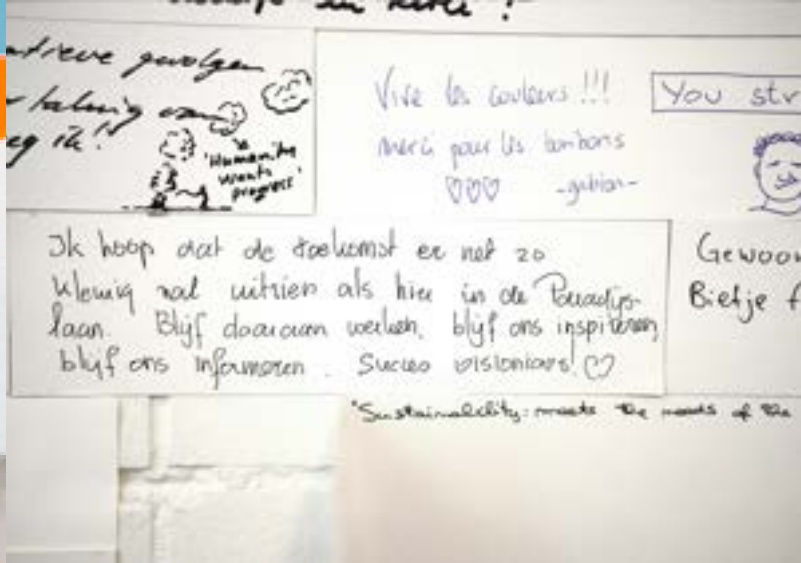 in
gevolgen
ik!!
"Humanity
wants
progress"
Vive les couleurs !!!
merci pour les bonbons
♡♡♡ -gabian-
You str
Ik hoop dat de toekomst er net zo
kleurig zal uitzien als hier in de Paradijs-
laan. Blijf daaraan werken, blijf ons inspireren,
blijf ons informeren. Succes visionairs! ♡
Gewoon
Bietje f
"Sustainability: meets the needs of the